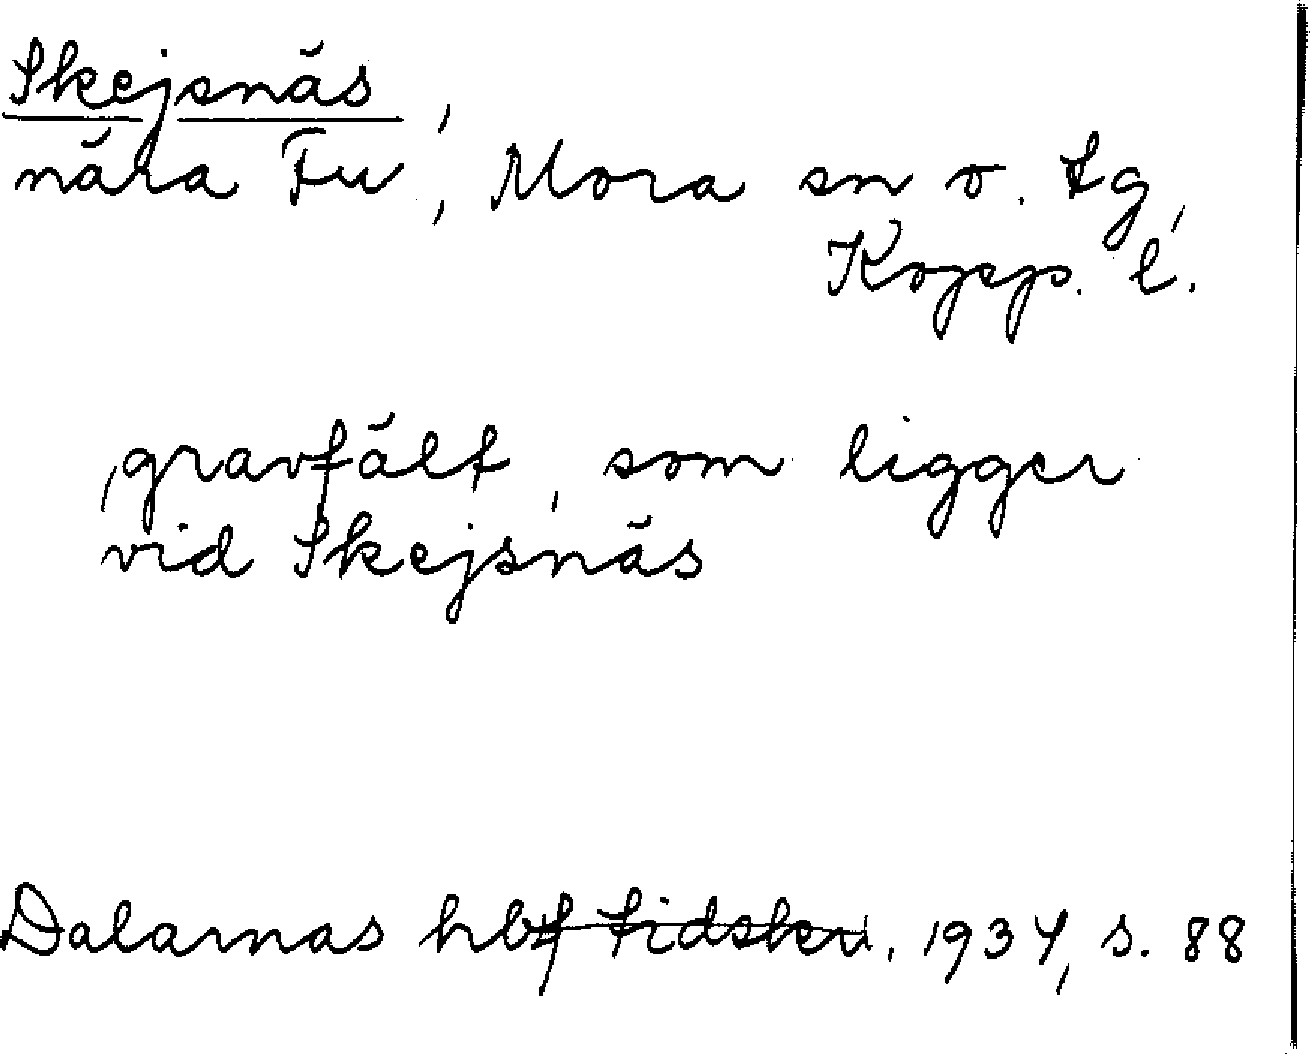 Skejsnäs,
nära Fu, Mora sn o. tg,
Kopp. l.
gravfält, som ligger
vid Skejsnäs
Dalarnas hbf tidskri. 1934, s. 88